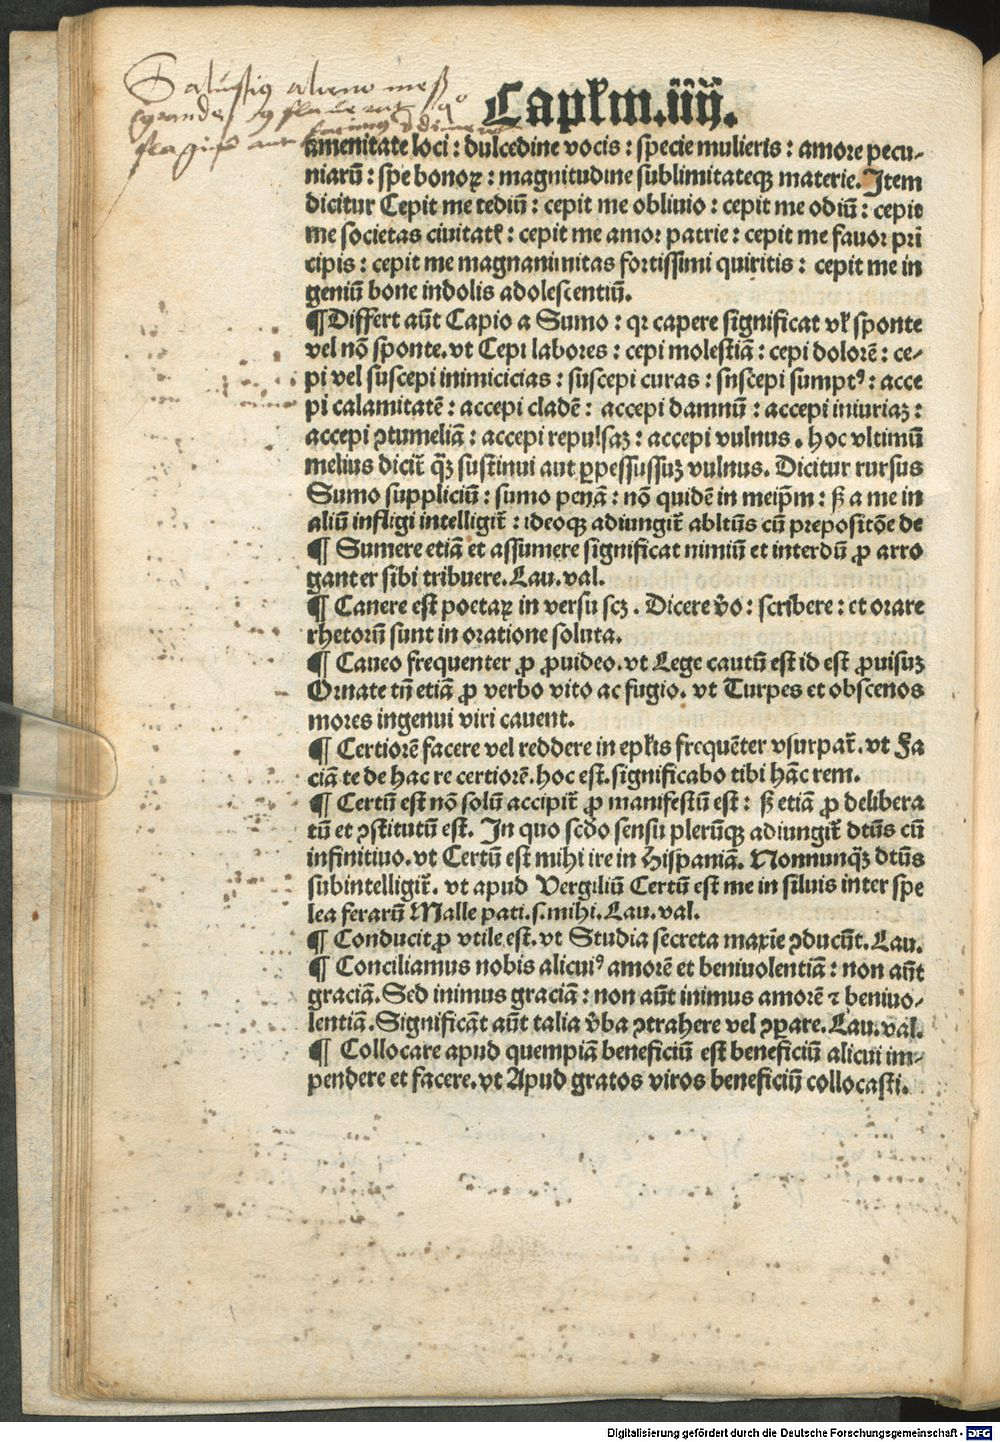 Salustius alieno
Capłm.iiij.
amenitate loci : dulcedine vocis : specie mulieris : amore pecu-
niarū : spe bonoꝝ : magnitudine sublimitateqꝫ materie. Item
dicitur Cepit me tediū : cepit me obliuio : cepit me odiū : cepit
me societas ciuitatꝭ : cepit me amor patrie : cepit me fauor pri̅
cipis : cepit me magnanimitas fortissimi quiritis : cepit me in
geniū bone indolis adolescentiū.
¶ Differt aūt Capio a Sumo : qꝛ capere significat vł sponte
vel nō sponte. vt Cepi labores : cepi molestiā : cepi dolorē : ce-
pi vel suscepi inimicicias : suscepi curas : suscepi sumptꝰ : acce
pi calamitatē : accepi cladē : accepi damnū : accepi iniuriaꝫ :
accepi ↄtumeliā : accepi repulsaꝫ : accepi vulnus. hoc vltimū
melius dicit̄ qꝫ̄ sustinui aut ꝑpessussuꝫ vulnus. Dicitur rursus
Sumo suppliciū : sumo penā : nō quidē in meip̄m : ß a me in
aliū infligi intelligit̄ : ideoqꝫ adiungit̄ abltūs cū prepositōe de
¶ Sumere etiā et assumere significat nimiū et interdū ꝓ arro
ganter sibi tribuere. Lau. val.
¶ Canere est poetaꝝ in versu scꝫ. Dicere v̄o : scribere : et orare
rhetorū sunt in oratione soluta.
¶ Caueo frequenter ꝓ ꝓuideo. vt Lege cautū est id est ꝓuisuꝫ
Ornate tn̄ etiā ꝓ verbo vito ac fugio. vt Turpes et obscenos
mores ingenui viri cauent.
¶ Certiorē facere vel reddere in epłis frequēter vsurpat̄. vt Fa
ciā te de hac re certiorē. hoc est. significabo tibi hāc rem.
¶ Certū est nō solū accipit̄ ꝓ manifestū est : ß etiā ꝓ delibera
tū et ↄstitutū est. In quo scdo sensu plerūqꝫ adiungit̄ dtūs cū
infinitiuo. vt Certū est mihi ire in hispaniā. Nonnunqꝫ̄ dtūs
subintelligit̄. vt apud Vergiliū Certū est me in siluis inter spe
lea ferarū Malle pati. s. mihi. Lau. val.
¶ Conducit ꝓ vtile est. vt Studia secreta maxīe ↄducūt. Lau.
¶ Conciliamus nobis alicuiꝰ amorē et beniuolentiā : non aūt
graciā. Sed inimus graciā : non aūt inimus amorē ⁊ beniuo-
lentiā. Significāt aūt talia v̄ba ↄtrahere vel ↄꝑare. Lau. val.
¶ Collocare apud quempiā beneficiū est beneficiū alicui im-
pendere et facere. vt Apud gratos viros beneficiū collocasti.
Digitalisierung gefördert durch die Deutsche Forschungsgemeinschaft - DFG